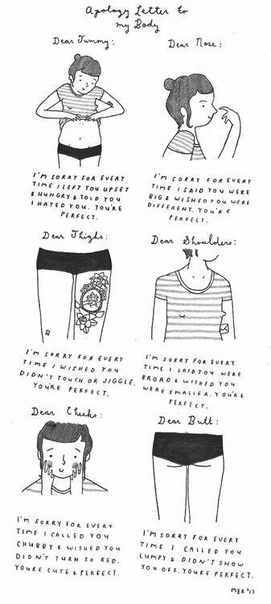 Apology Letter to
my Body
Dear Tummy:
I'M SORRY FOR EVERY
TIME I LEFT YOU UPSET
& HUNGRY & TOLD YOU
I HATED YOU. YOU'RE
PERFECT.
Dear Nose:
I'M SORRY FOR EVERY
TIME I SAID YOU WERE
BIG & WISHED YOU WERE
DIFFERENT. YOU'RE
PERFECT.
Dear Thighs:
I'M SORRY FOR EVERY
TIME I WISHED YOU
DIDN'T TOUCH OR JIGGLE.
YOU'RE PERFECT.
Dear Shoulders:
I'M SORRY FOR EVERY
TIME I SAID YOU WERE
BROAD & WISHED YOU
WERE SMALLER. YOU'RE
PERFECT.
Dear Cheeks:
I'M SORRY FOR EVERY
TIME I CALLED YOU
CHUBBY & WISHED YOU
DIDN'T TURN SO RED.
YOU'RE CUTE & PERFECT.
Dear Butt:
I'M SORRY FOR EVERY
TIME I CALLED YOU
LUMPY & DIDN'T SHOW
YOU OFF. YOU'RE PERFECT.